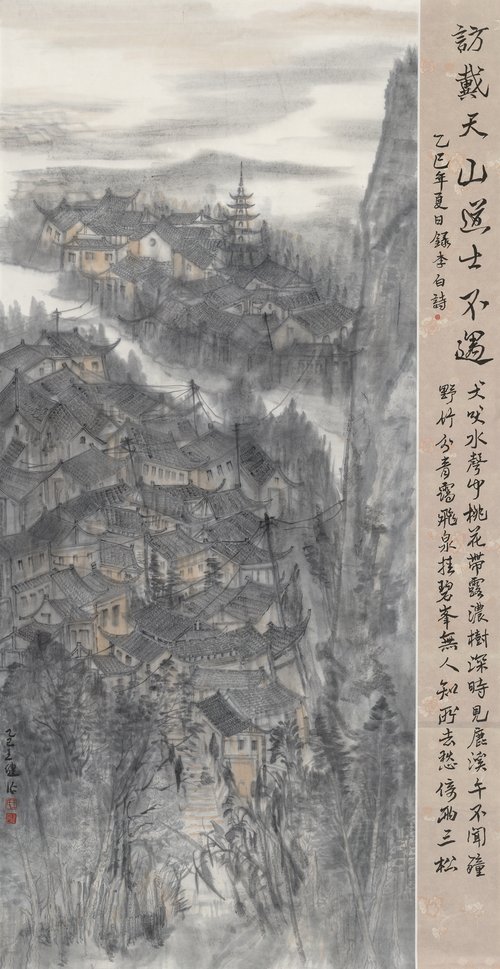 訪戴天山道士不遇
犬吠水聲中桃花帶露濃樹深時見鹿溪午不聞鐘
野竹分青靄飛泉挂碧峯無人知所去愁倚兩三松
乙巳年夏日錄李白詩